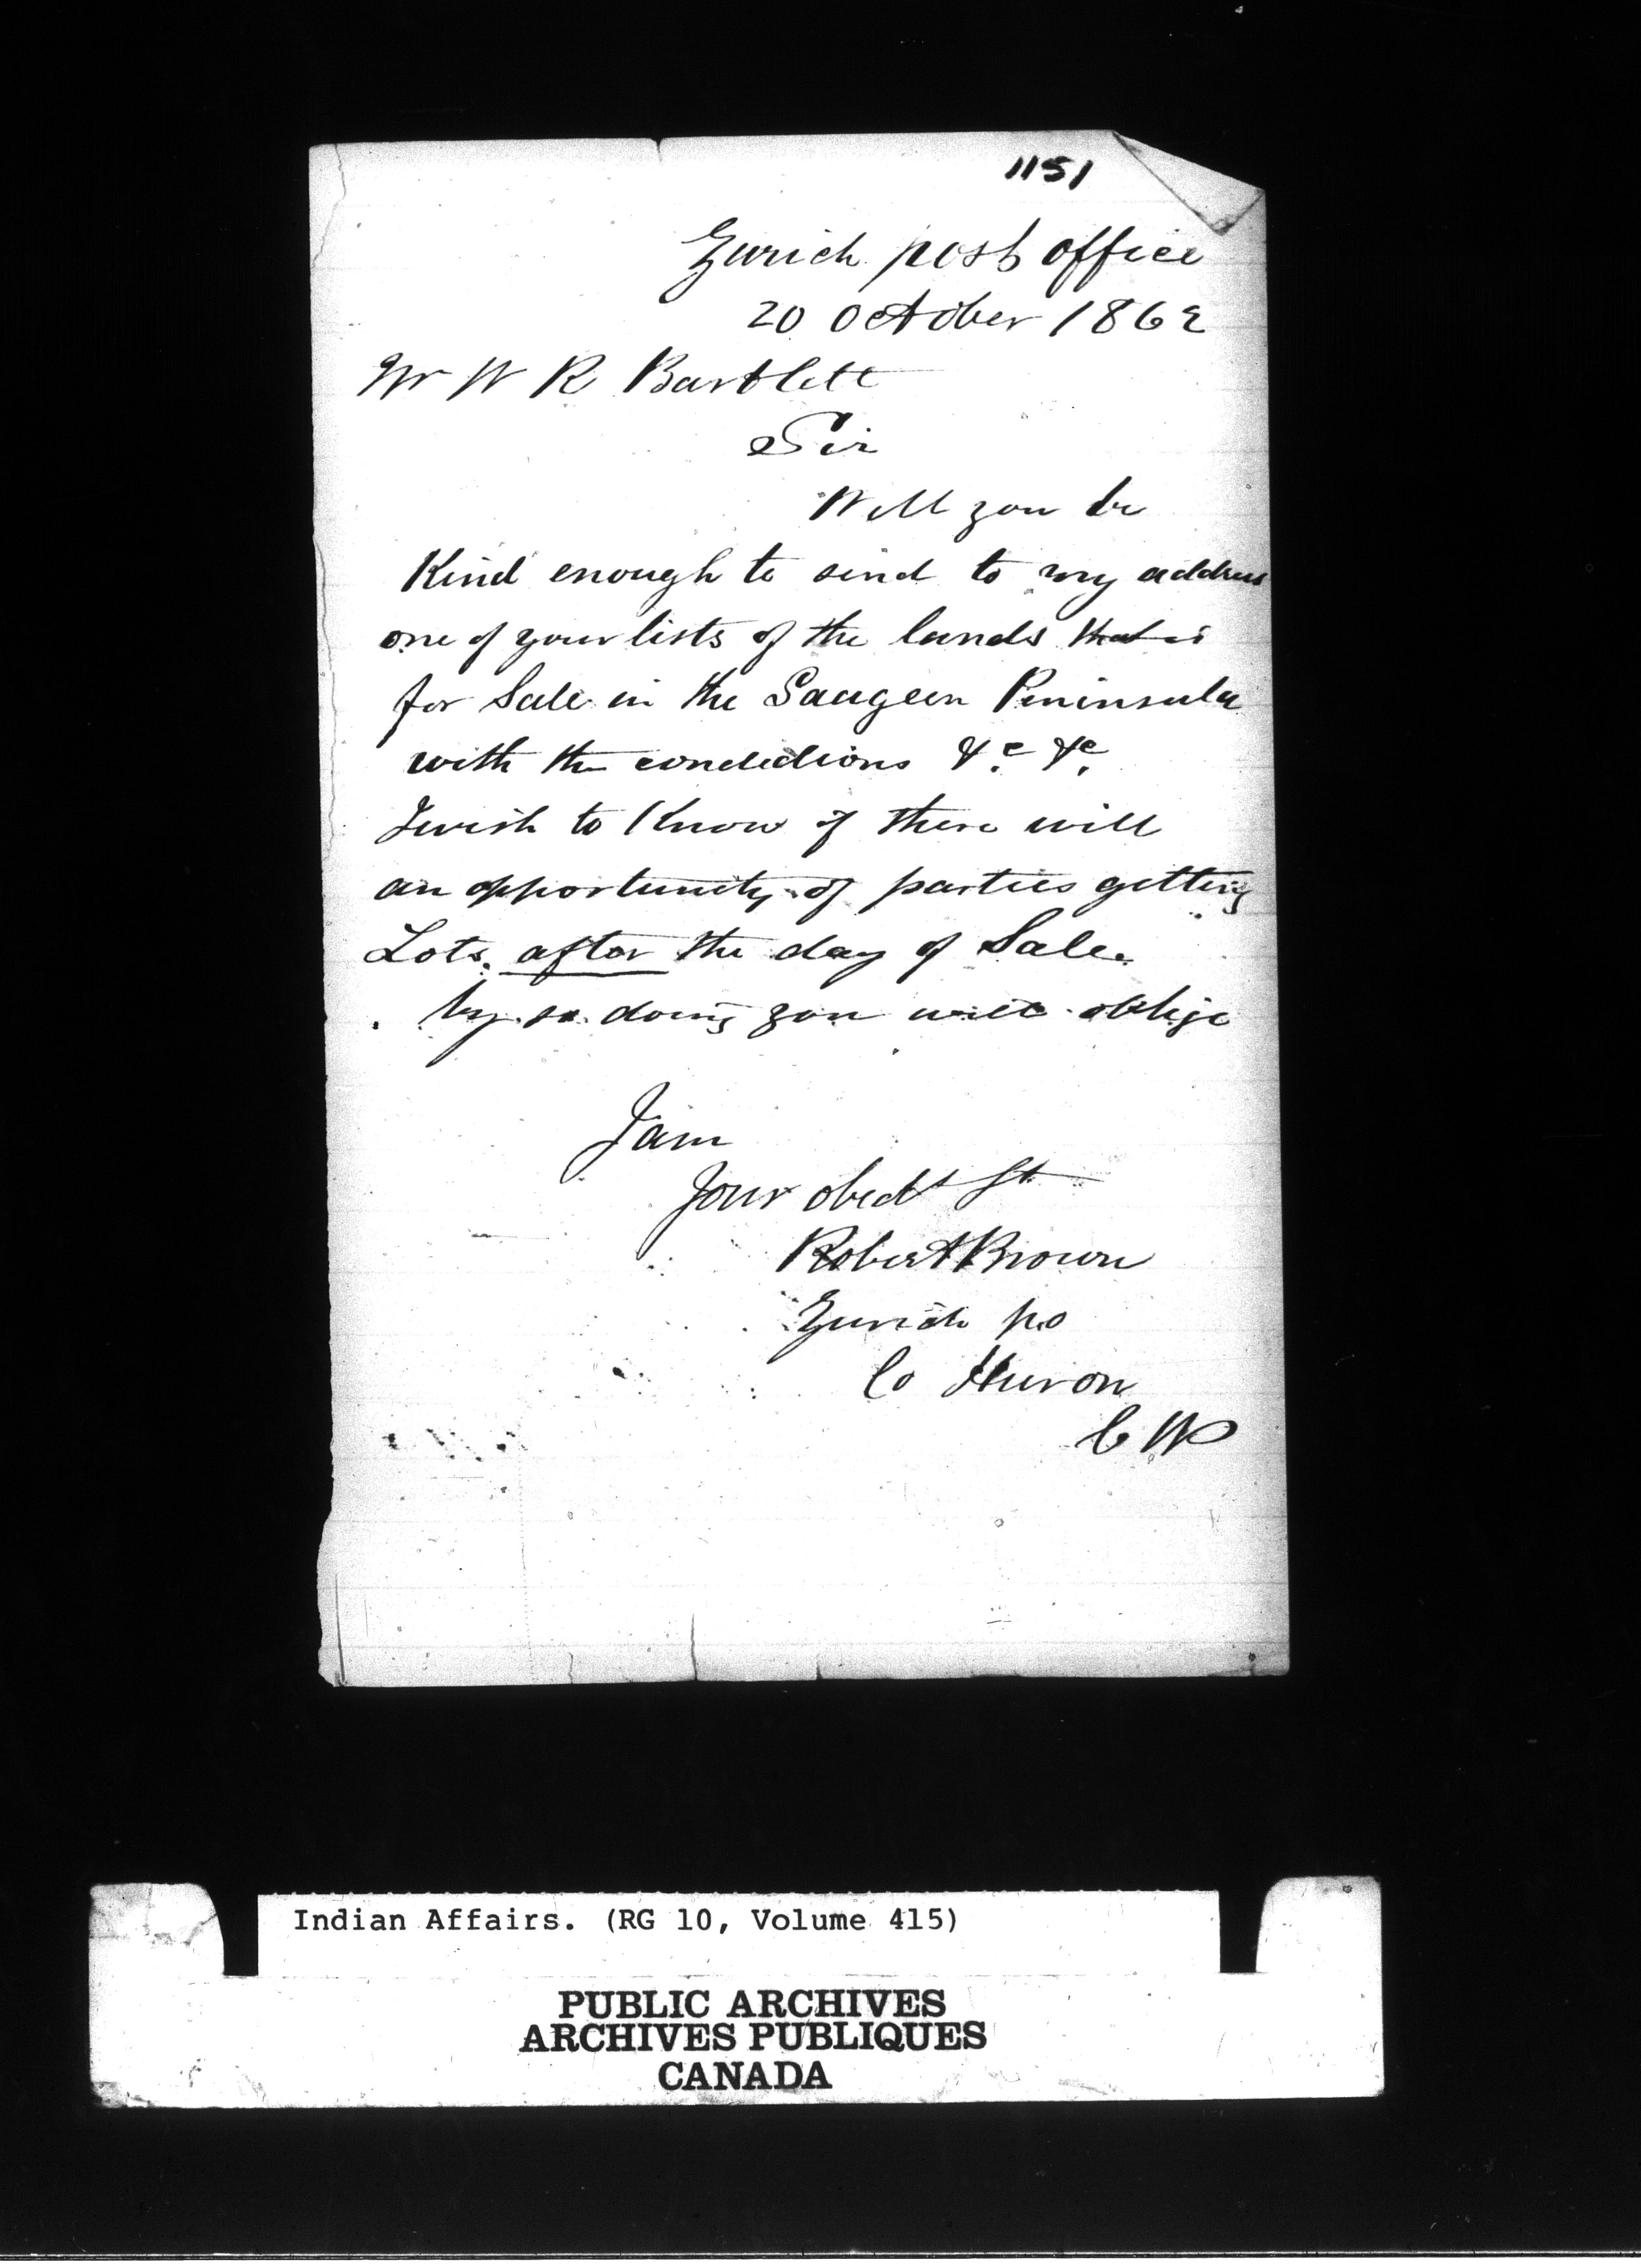 1151
Zurich post office
20 October 1862
Mr W R Bartlett
Sir
Will you be
Kind enough to send to my address
one of your lists of the lands that is
for Sale in the Saugeen Peninsula
with the condidions &c &c
I wish to Know if there will
an opportunity of parties getting
Lots. after the day of Sale.
by so doing you will oblige
I am
Your obedt St
Robert Brown
Zurich po
Co Huron
C W
Indian Affairs. (RG 10, Volume 415)
PUBLIC ARCHIVES
ARCHIVES PUBLIQUES
CANADA